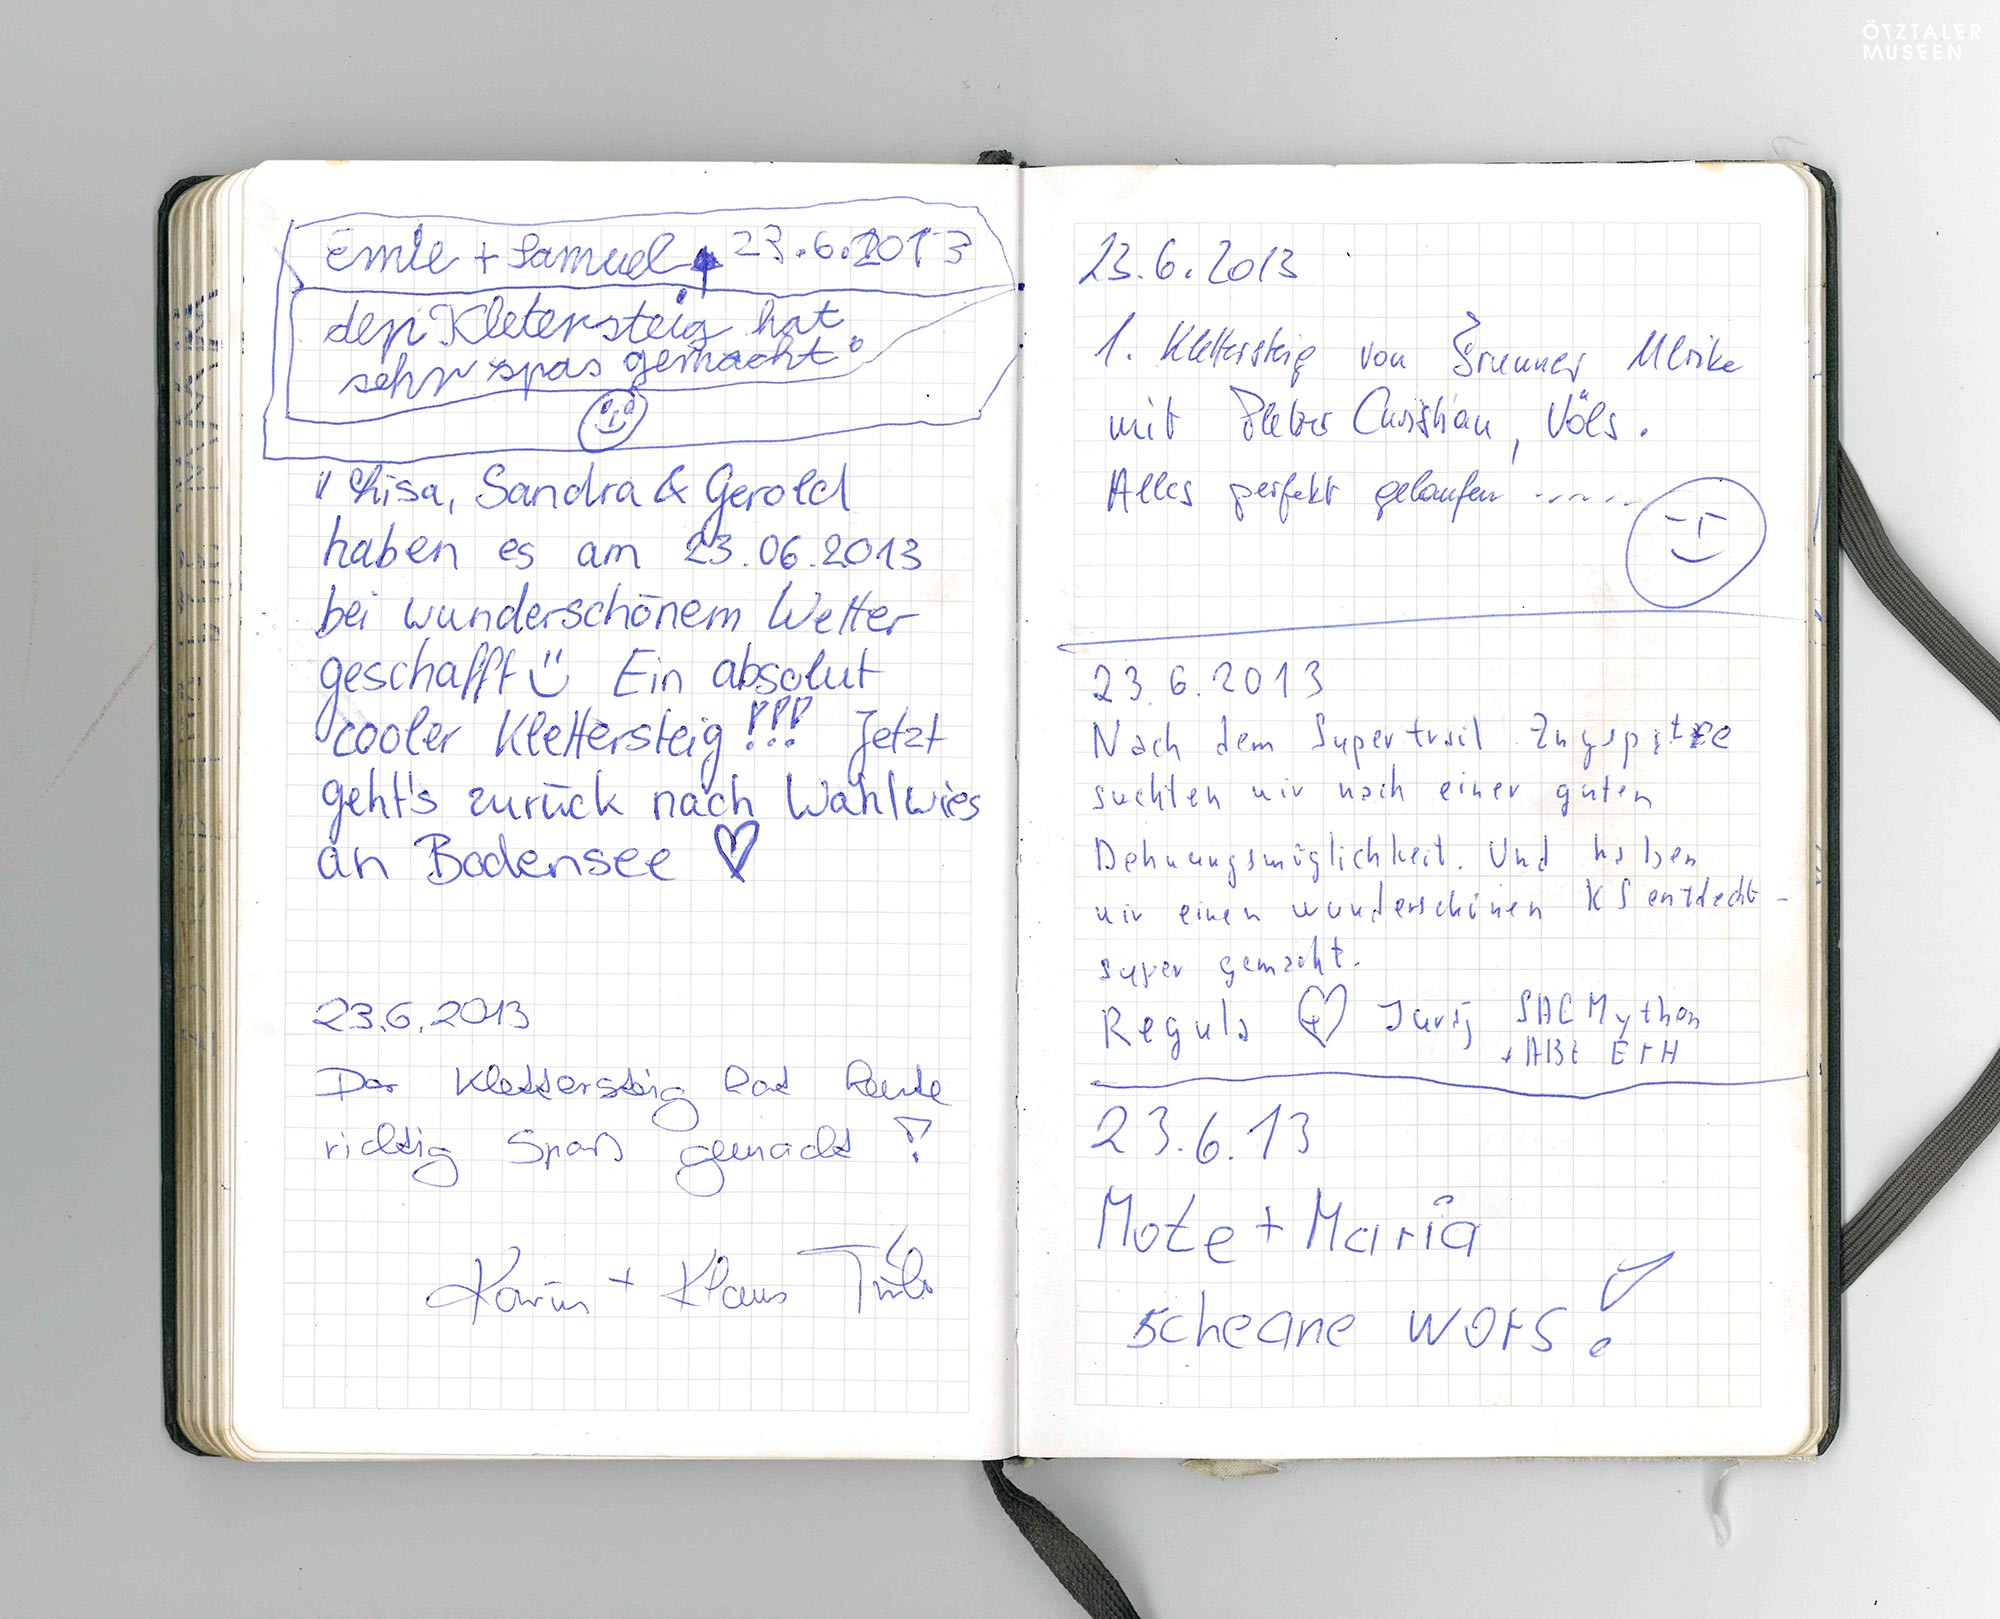 ÖTZTALER
MUSEEN
Emile + Samuel 23.6.2013
den Kletersteig hat
sehr spas gemacht.
Sandra & Gerold
haben es am 23.06.2013
bei wunderschönem Wetter
geschafft Ein absolut
cooler Klettersteig!!! Jetzt
geht's zurück nach Wahlwies
an Bodensee
23.6.2013
Der Klettersteig hat heute
richtig Spaß gemacht!
Karin + Klaus
23.6.2013
1. Klettersteig von Brunner Ulrike
mit Christian, Völs.
Alles perfekt gelaufen .....
23.6.2013
Nach dem Supertrail Zugspitze
suchten wir nach einer guten
Dehnungsmöglichkeit. Und haben
wir einen wunderschönen KS entdeckt -
super gemacht.
Regula Jurij SAC Mythen
+ ABE ETH
23.6.13
Mote + Maria
scheane wors!